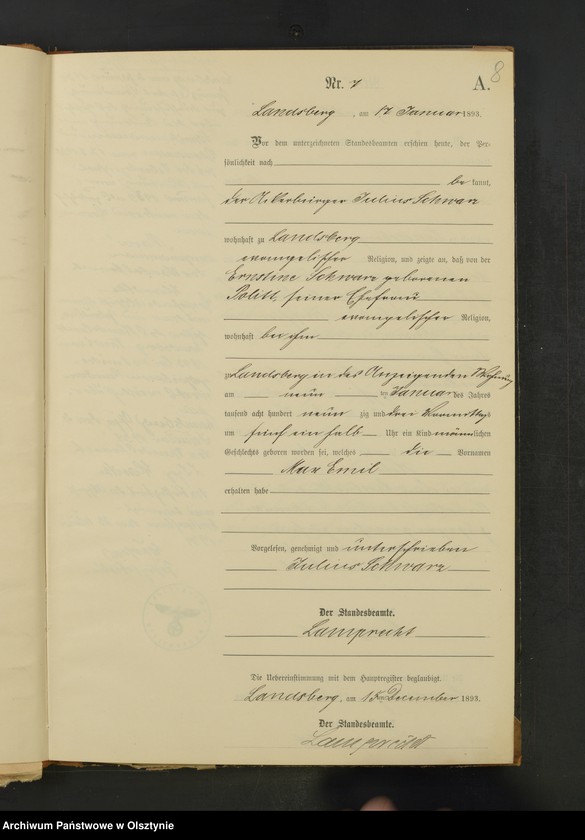 8
Nr. 7 A.
Landsberg, am 12 Januar 1893.
Vor dem unterzeichneten Standesbeamten erschien heute, der Per-
sönlichkeit nach
be kannt,
der Ackerbürger Julius Schwarz
wohnhaft zu Landsberg
evangelischer Religion, und zeigte an, daß von der
Ernstine Schwarz geborenen
Politt, seiner Ehefrau
evangelischer Religion,
wohnhaft bei ihm
zu Landsberg in des Anzeigenden Wohnung
am neun ten Januar des Jahres
tausend acht hundert neun zig und drei Vormittags
um fünf ein halb Uhr ein Kind männlichen
Geschlechts geboren worden sei, welches die Vornamen
Max Emil
erhalten habe
Vorgelesen, genehmigt und unterschrieben
Julius Schwarz
Der Standesbeamte.
Lamprecht
Die Uebereinstimmung mit dem Hauptregister beglaubigt.
Landsberg, am December 1893.
Der Standesbeamte.
Lamprecht
Archiwum Państwowe w Olsztynie